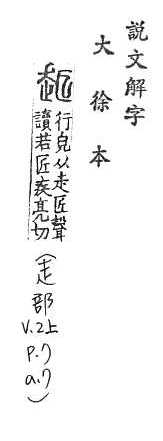 説文解字
大徐本
行皃从走匠聲
讀若匠疾亮切
(走部 V.2上 p.7 a.7)